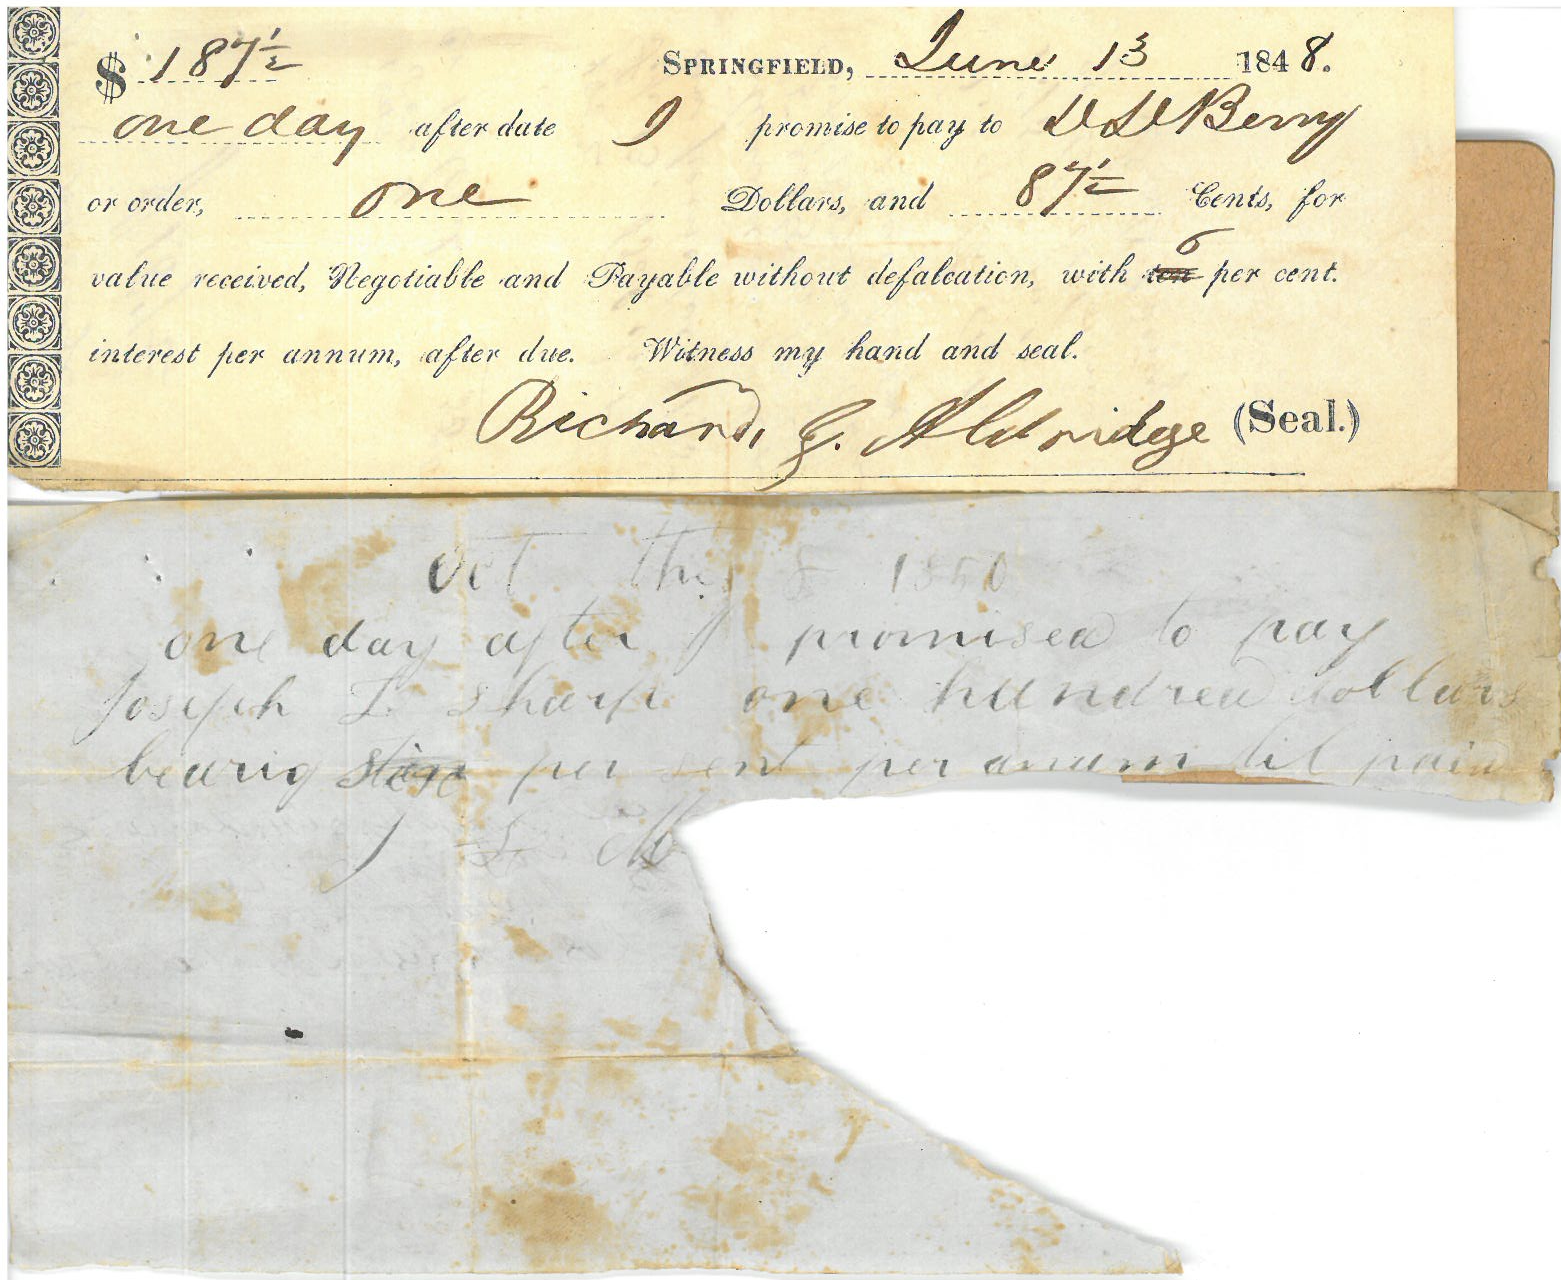 $ 187½ SPRINGFIELD, June 13 1848.
one day after date I promise to pay to D D Berry
or order, one Dollars, and 87½ Cents, for
6
value received, Negotiable and Payable without defalcation, with ten per cent.
interest per annum, after due. Witness my hand and seal.
Richard G. Aldridge (Seal.)
Oct the 8 1850
one day after I promised to pay
Joseph L Sharp one hundred dollars
bearig per sent per anum til paid
J L